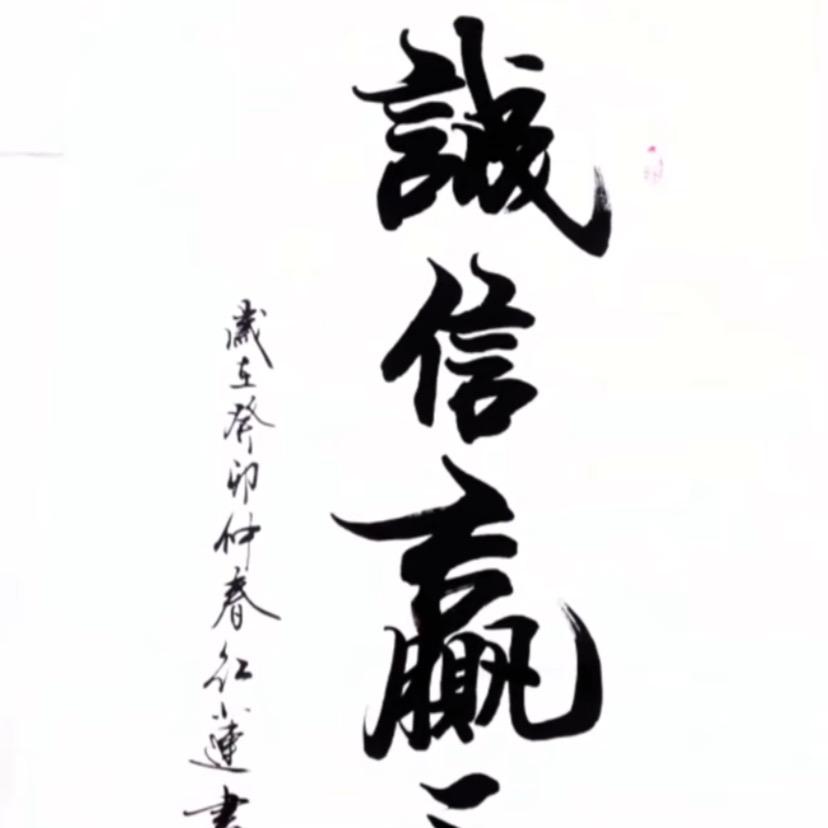 誠信贏
歲在癸卯仲春紅小蓮書